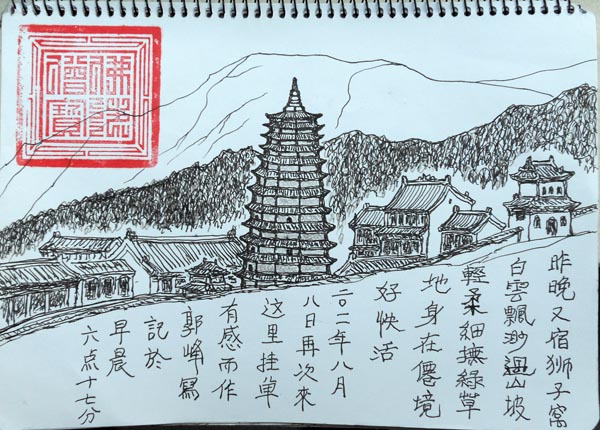 佛法僧寶
昨晚又宿狮子窝
白雲飄渺過山坡
輕柔細撫綠草
地身在僊境
好快活
二〇二一年八月
八日再次來
这里挂单
有感而作
郭峰寫
記於
早晨
六点十七分